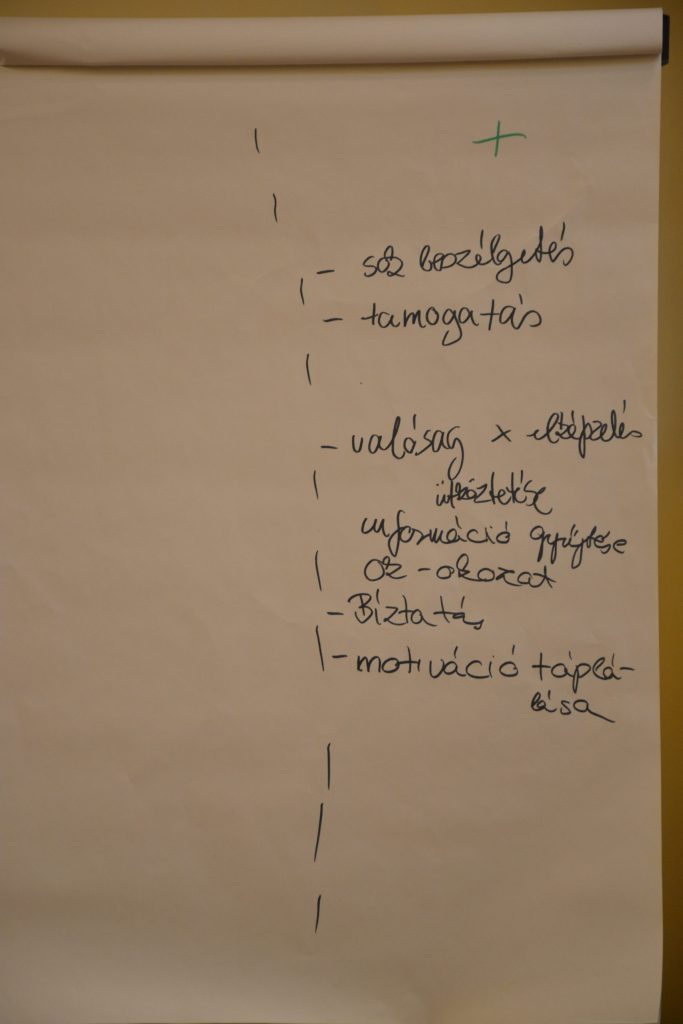 +
- sok beszélgetés
- tamogatás
- valóság x elképzelés
ütköztetése
információ gyűjtése
ok - okozat
- Bíztatás
- motiváció táplá-
lása